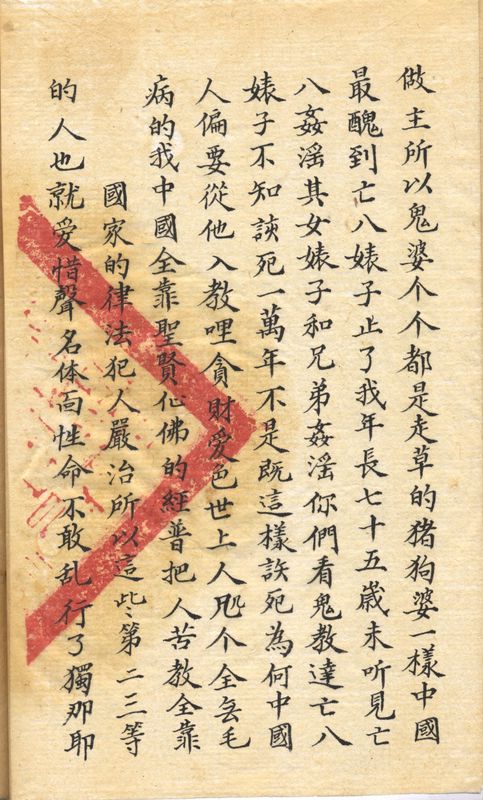 做主所以鬼婆个个都是走草的猪狗婆一樣中國
最醜到亡八婊子止了我年長七十五歲未听見亡
八姦滛其女婊子和兄弟姦滛你們看鬼教達亡八
婊子不知該死一萬年不是既這樣該死為何中國
人偏要從他入教哩貪財愛色世上人凡个全無毛
病的我中國全靠聖賢仙佛的經普把人苦教全靠
國家的律法犯人嚴治所以這些第二三等
的人也就愛惜聲名体面性命不敢乱行了獨那耶